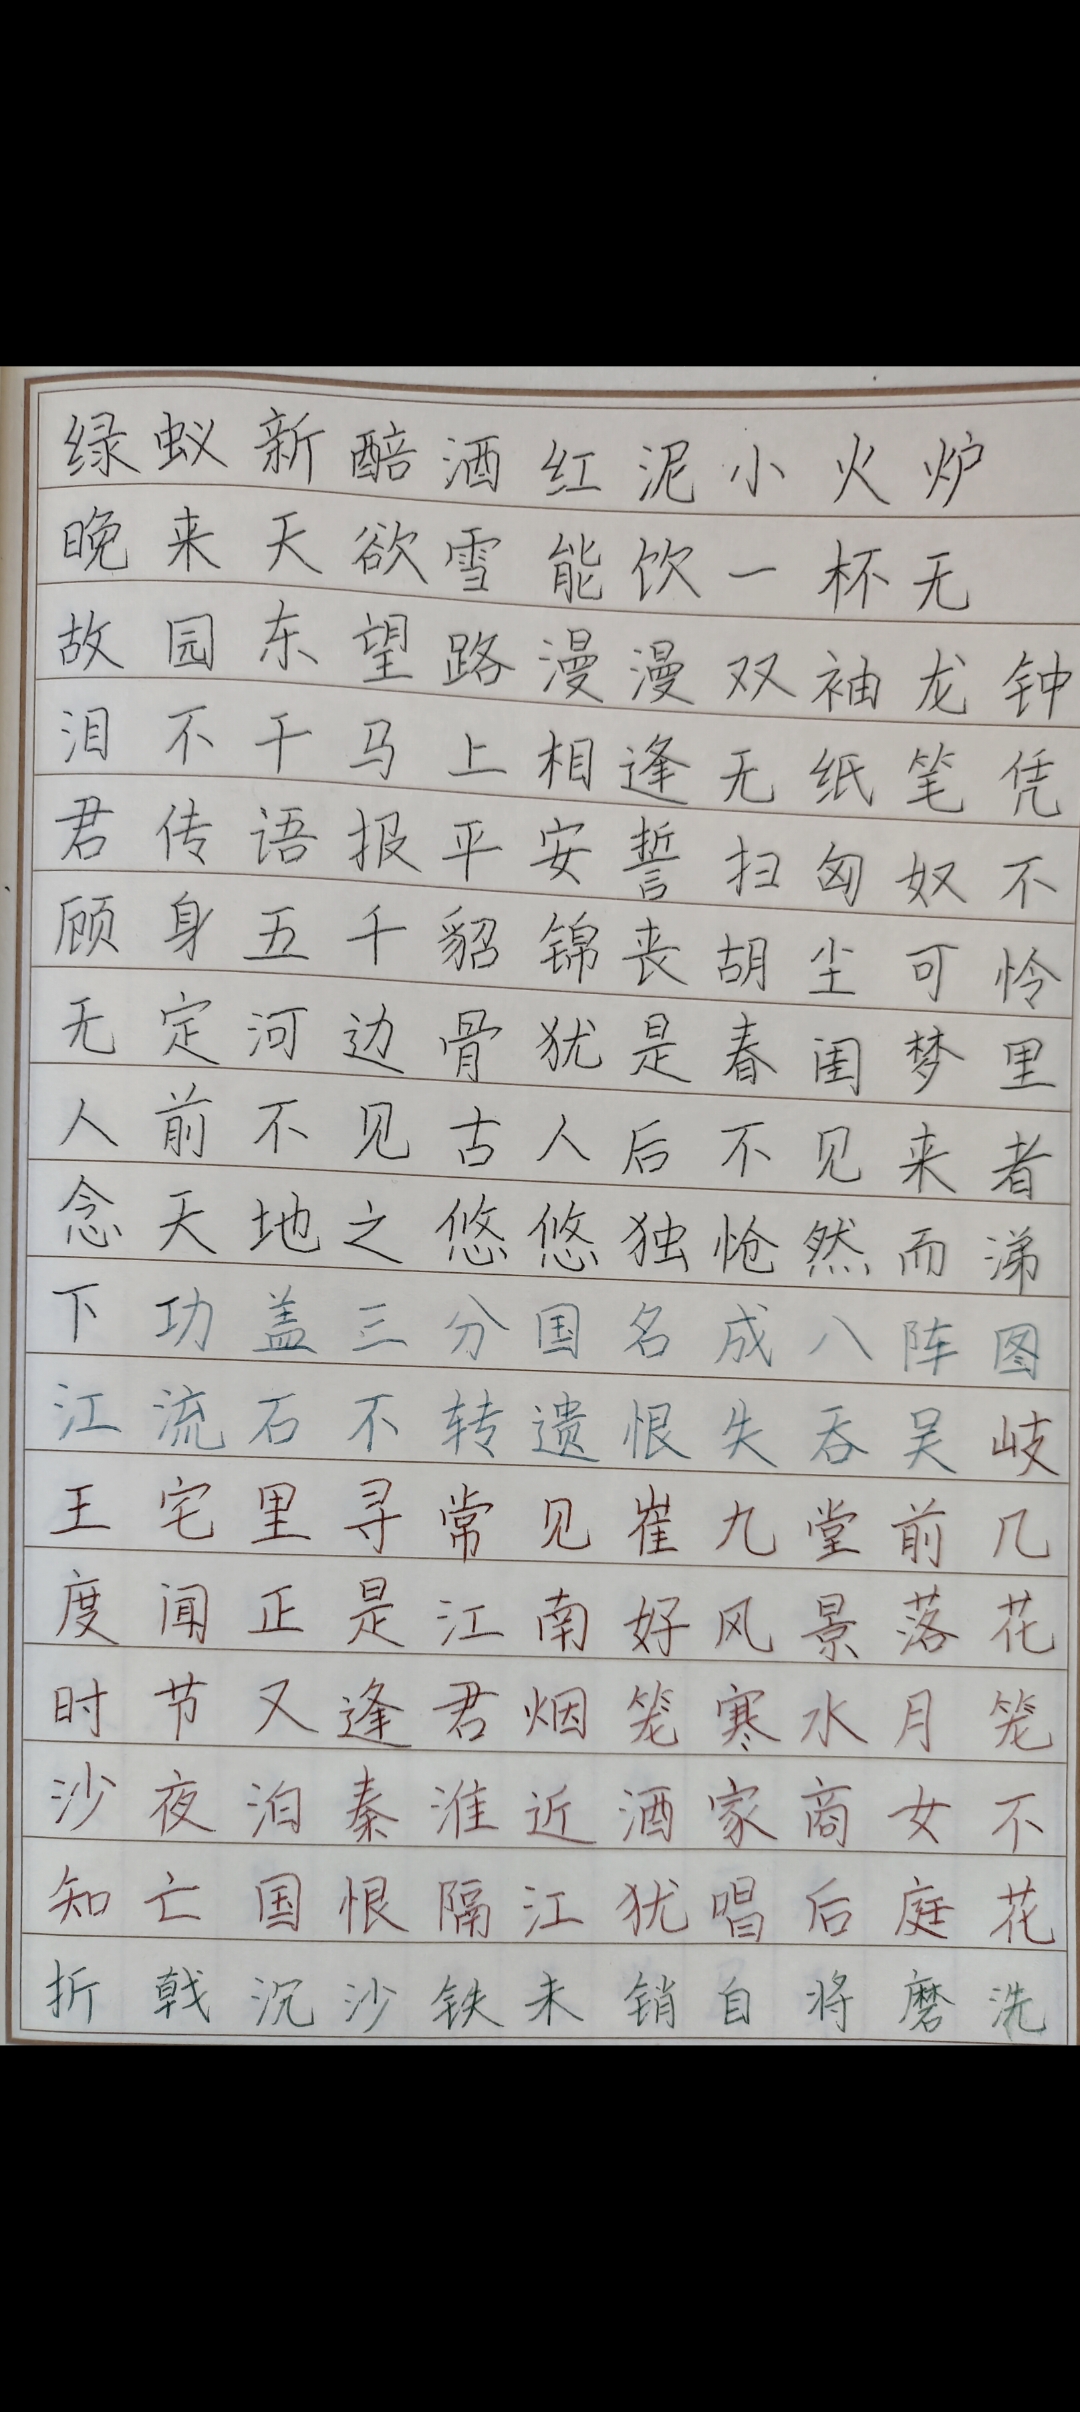 绿蚁新醅酒红泥小火炉
晚来天欲雪能饮一杯无
故园东望路漫漫双袖龙钟
泪不干马上相逢无纸笔凭
君传语报平安誓扫匈奴不
顾身五千貂锦丧胡尘可怜
无定河边骨犹是春闺梦里
人前不见古人后不见来者
念天地之悠悠独怆然而涕
下功盖三分国名成八阵图
江流石不转遗恨失吞吴岐
王宅里寻常见崔九堂前几
度闻正是江南好风景落花
时节又逢君烟笼寒水月笼
沙夜泊秦淮近酒家商女不
知亡国恨隔江犹唱后庭花
折戟沉沙铁未销自将磨洗